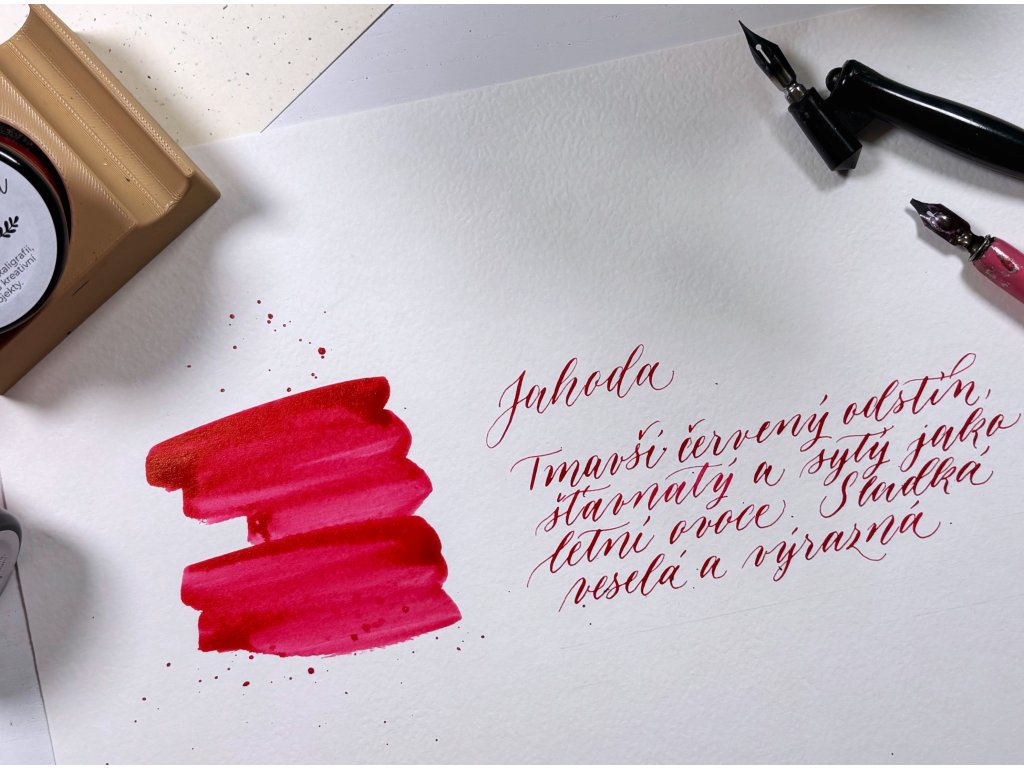 kaligrafii,
kreativní
Jahoda
Tmavší červený odstín,
šťavnatý a sytý jako
letní ovoce. Sladká
veselá a výrazná